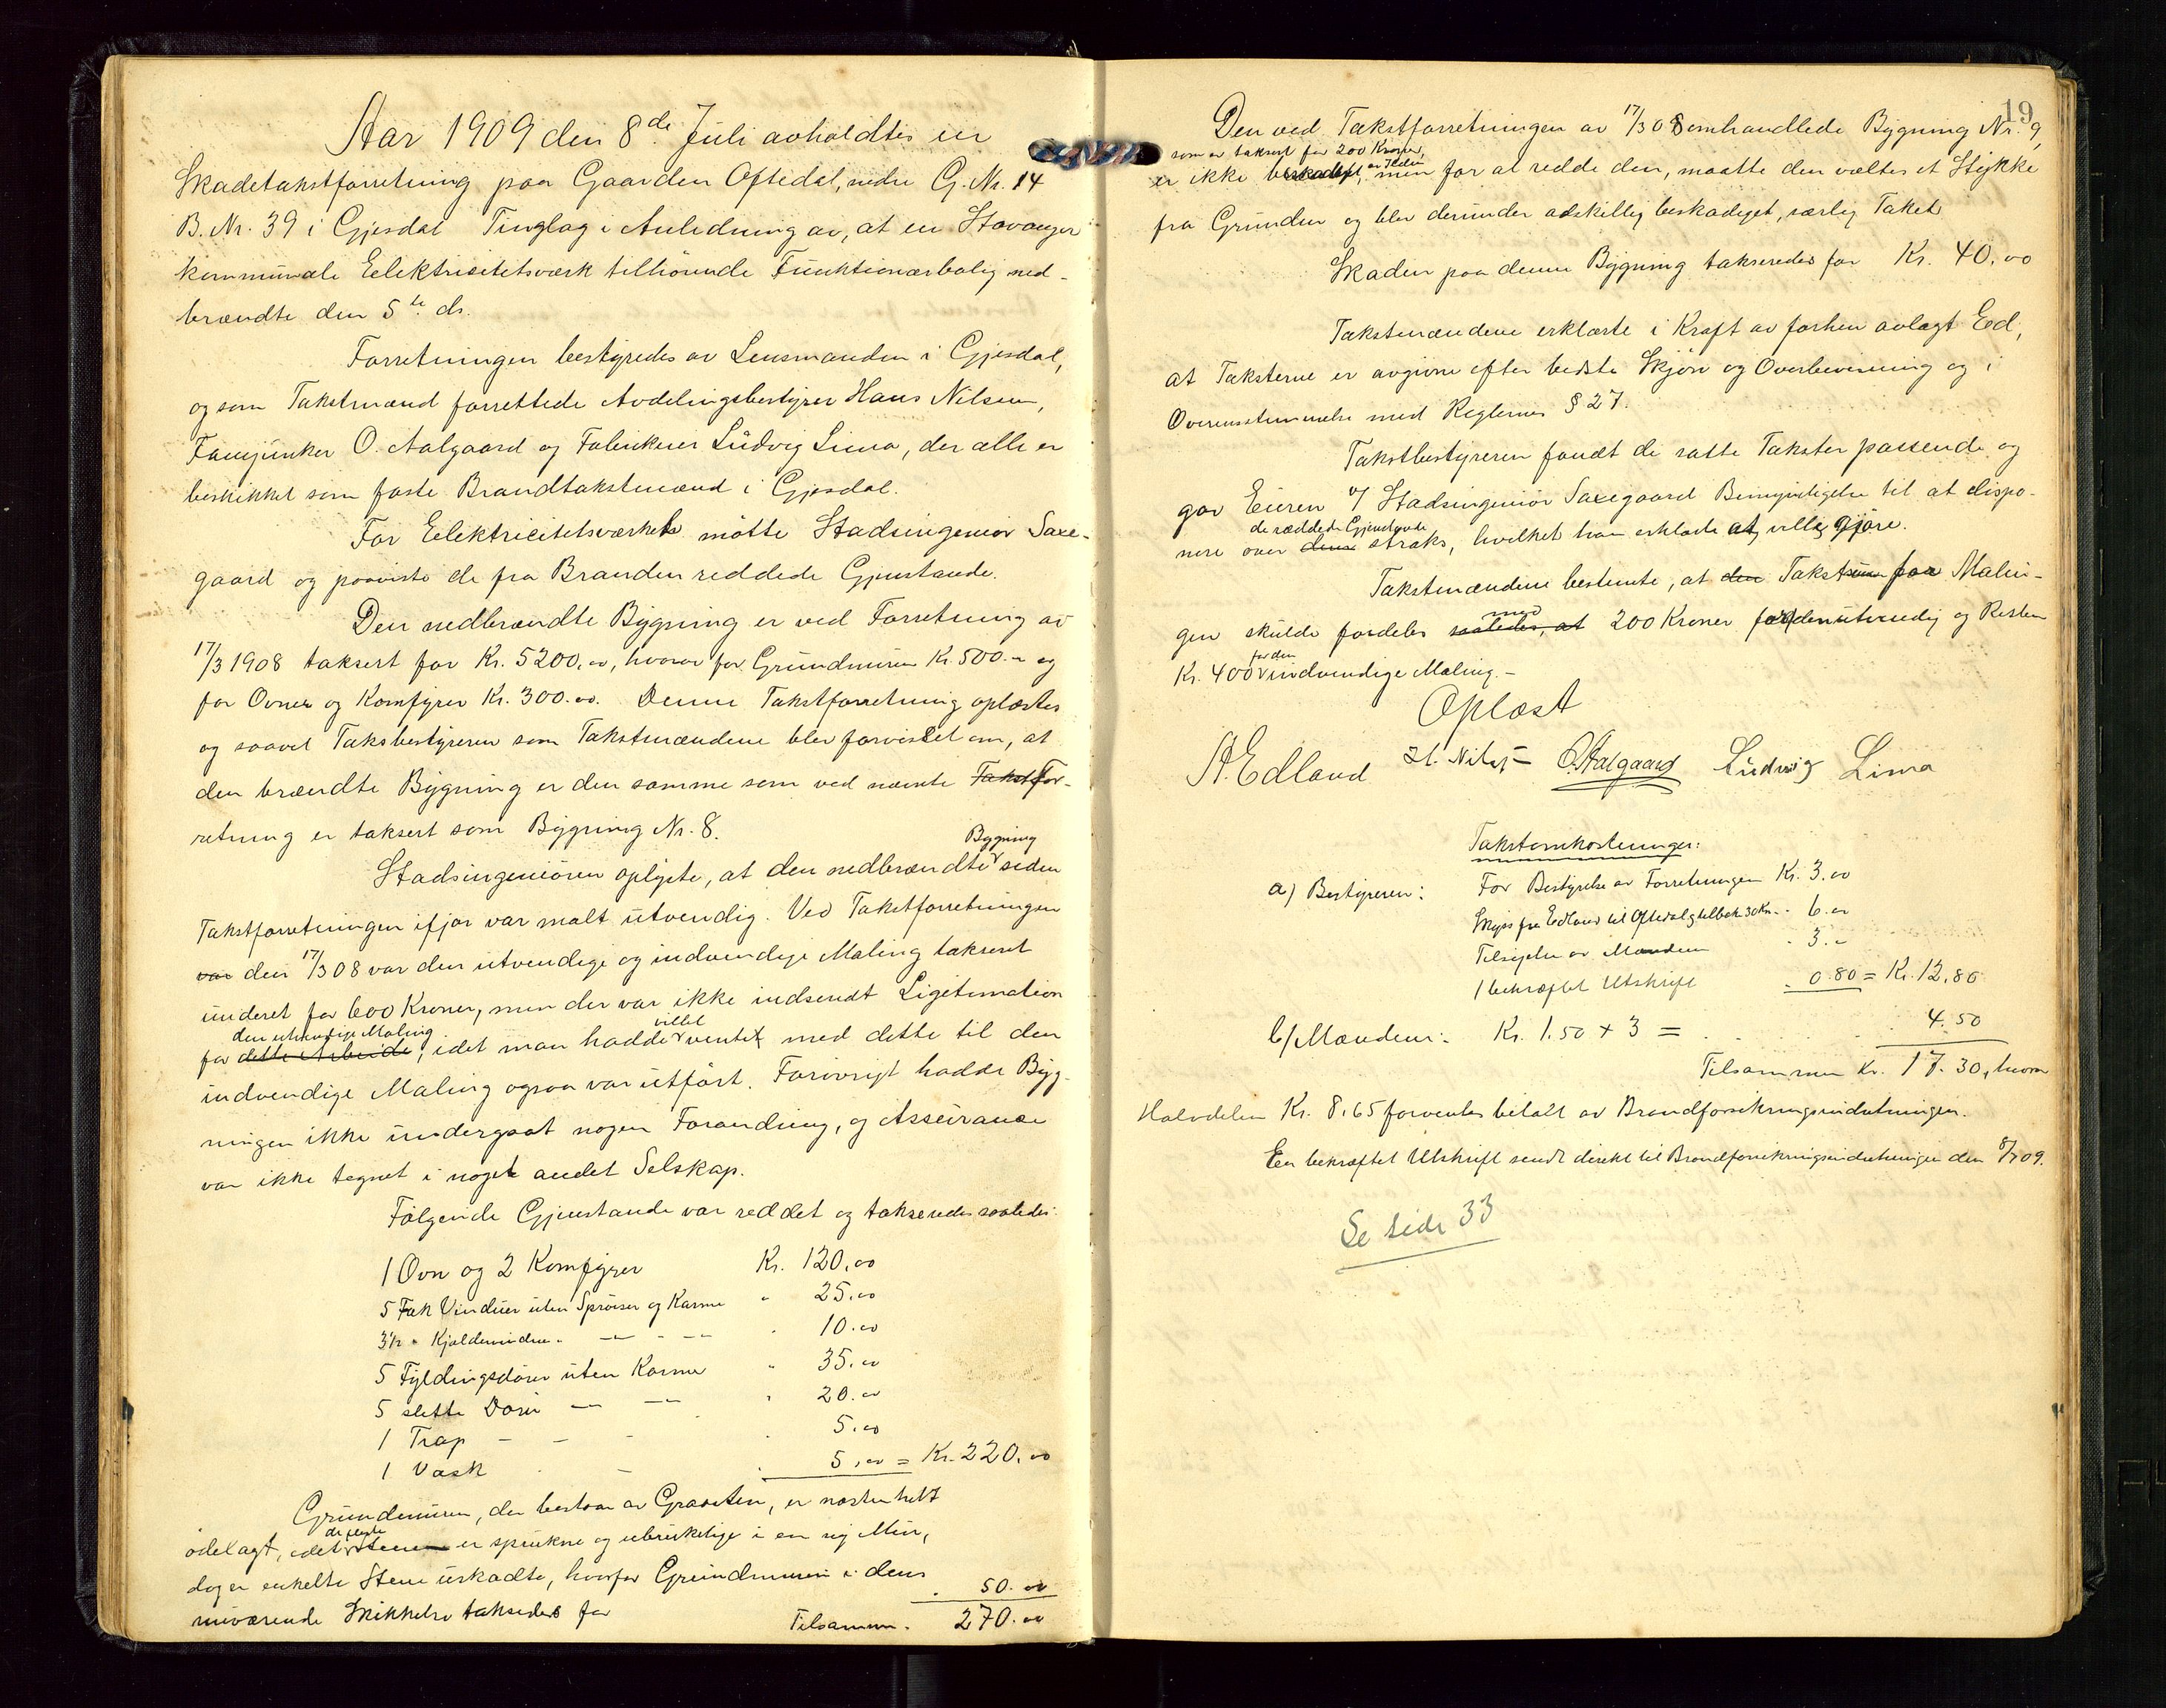 Aar 1909 den 8de Juli avholdtes en
Skadetakstforretning paa Gaarden Oftedal, nedre G. Nr. 14
B. Nr. 39 i Gjesdal Tinglag i Anledning av, at en Stavanger
kommunale Elektricitetsværk tilhørende Funktionærbolig ned-
brændte den 5te ds.
Forretningen bestyredes av Lensmanden i Gjesdal,
og som Takstmænd forrettede Avdelingsbestyrer Hans Nilsen,
Fanejunker O. Aalgaard og Fabrikeier Ludvig Lima, der alle er
beskikket som faste Brandtakstmænd i Gjesdal.
For Elektricitetsværket møtte Stadsingeniør Saxe-
gaard og paaviste de fra Branden reddede Gjenstande.
Den nedbrændte Bygning er ved Forretning av
17/3 1908 taksert for Kr. 5200,00, hvorav for Grundmuren Kr. 500.- og
for Ovner og Komfyrer Kr. 300.00. Denne Takstforretning oplæstes
og saavel Takstbestyreren som Takstmændene blev forvisset om, at
den brændte Bygning er den samme som ved nævnte Takst For-
retning er taksert som Bygning Nr. 8.
Bygning
Stadsingeniøren oplyste, at den nedbrændte siden
Takstforretningen ifjor var malt utvendig. Ved Takstforretningen
var den 17/3 08 var den utvendige og indvendige Maling taksert
underet for 600 Kroner, men der var ikke indsendt Ligitimation
den utvendige Maling villet
for dette Arbeide, idet man hadde ventet med dette til den
indvendige Maling ogsaa var utført. Forøvrigt hadde Byg-
ningen ikke undergaat nogen Forandring, og Assurance
var ikke tegnet i noget andet Selskap.
Følgende Gjenstande var reddet og takseredes saaledes:
1 Ovn og 2 Komfyrer Kr. 120,00
5 Fak Vinduer uten Sprosser og Karme " 25,00
3 1/2 " Kjældervinduer " — " — 10.00
5 Fyldingsdører uten Karme " 35.00
5 slette Døre — — " 20.00
1 Trap — — - 5,00
1 Vask - — 5,00 = Kr. 220,00
Grundmuren, der bestaar av Graasten, er næsten helt
de fleste
ødelagt, idet Stene er sprukne og ubrukelige i en ny Mur,
dog er enkelte Stene uskadte, hvorfor Grundmuren i dens
nuværende Skikkelse takseredes for 50.00
Tilsammen. 270.00
19
Den ved Takstforretningen av 17/3 08 omhandlede Bygning Nr. 9,
som er taksert for 200 Kroner,
av Ilden
er ikke beskadiget, men for at redde den, maatte den væltes et Stykke
fra Grunden og blev derunder adskillig beskadiget, særlig Taket
Skaden paa denne Bygning takseredes for Kr. 40,00
Takstmændene erklærte i Kraft av forhen avlagt Eed,
at Taksterne er avgivne efter bedste Skjøn og Overbevisning og i
Overensstemmelse med Reglernes § 27.
Takstbestyreren fandt de satte Takster passende og
gav Eieren v/ Stadsingeniør Saxegaard Bemyndigelse til at dispo-
de reddede Gjenstande
nere over disse straks, hvilket han erklærte at ville gjøre.
Takstmændene bestemte, at den Taksten for Malin-
med
gen skulde fordeles saaledes, at 200 Kroner for den utvendig og Resten
for den
Kr. 400 indvendige Maling.-
Oplæst
A. Edland H. Nilsen O. Aalgaard Ludvig Lima
Takstomkostninger:
a) Bestyreren: For Bestyrelse av Forretningen Kr. 3.00
Skyss fra Edland til Oftedal og tilbake 30 Km. - 6.00
Tilsigelse av Mændene " 3.-
1 bekræftet Utskrift " 0.80 = Kr. 12,80
b/ Mændene: Kr. 1.50 + 3 = 4.50
Tilsammen Kr. 17.30, hvorav
Halvdelen Kr. 8,65 forventes betalt av Brandforsikringsindretningen.
En bekræftet Utskrift sendt direkte til Brandforsikringsindretningen den 8/7 09.
Se side 33